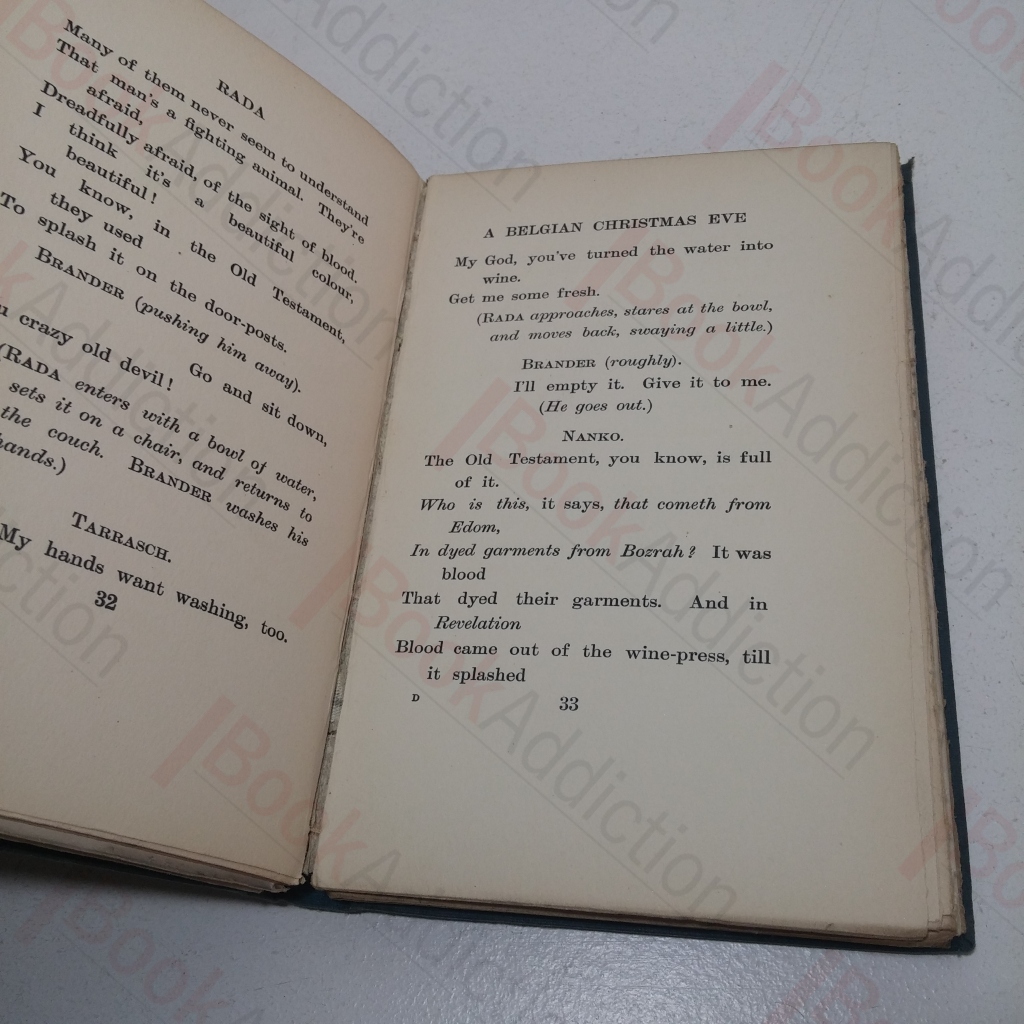 RADA
Many of them never seem to understand
That man's a fighting animal. They're
afraid,
Dreadfully afraid, of the sight of blood.
I think it's a beautiful colour,
beautiful!
You know, in the Old Testament,
they used
To splash it on the door-posts.
BRANDER (pushing him away).
crazy old devil! Go and sit down,
(RADA enters with a bowl of water,
sets it on a chair, and returns to
the couch. BRANDER washes his
hands.)
TARRASCH.
My hands want washing, too.
32
A BELGIAN CHRISTMAS EVE
My God, you've turned the water into
wine.
Get me some fresh.
(RADA approaches, stares at the bowl,
and moves back, swaying a little.)
BRANDER (roughly).
I'll empty it. Give it to me.
(He goes out.)
NANKO.
The Old Testament, you know, is full
of it.
Who is this, it says, that cometh from
Edom,
In dyed garments from Bozrah? It was
blood
That dyed their garments. And in
Revelation
Blood came out of the wine-press, till
it splashed
D 33
BookAddiction